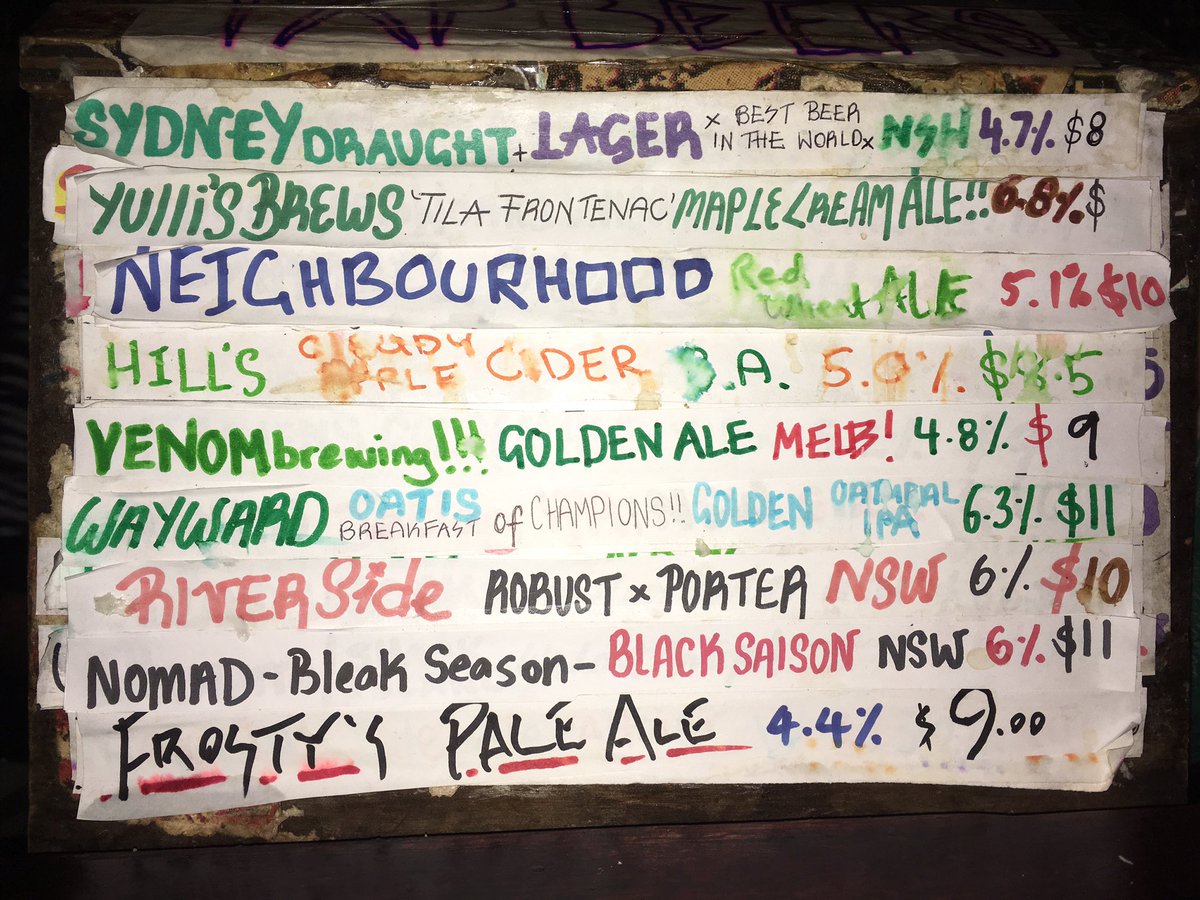 TAP BEERS
SYDNEY DRAUGHT + LAGER x BEST BEER IN THE WORLD x NSW 4.7% $8
YULLI'S BREWS 'TILA FRONTENAC' MAPLE CREAM ALE!! 6.8% $
NEIGHBOURHOOD Red Wheat ALE 5.1% $10
HILL'S CLOUDY APPLE CIDER S.A. 5.0% $8.5
VENOM brewing!!! GOLDEN ALE MELB! 4.8% $9
WAYWARD OATIS BREAKFAST of CHAMPIONS!! GOLDEN OATMEAL IPA 6.3% $11
RIVERSide ROBUST x PORTER NSW 6% $10
NOMAD - Bleak Season - BLACK SAISON NSW 6% $11
FROSTY'S PALE ALE 4.4% $9.00